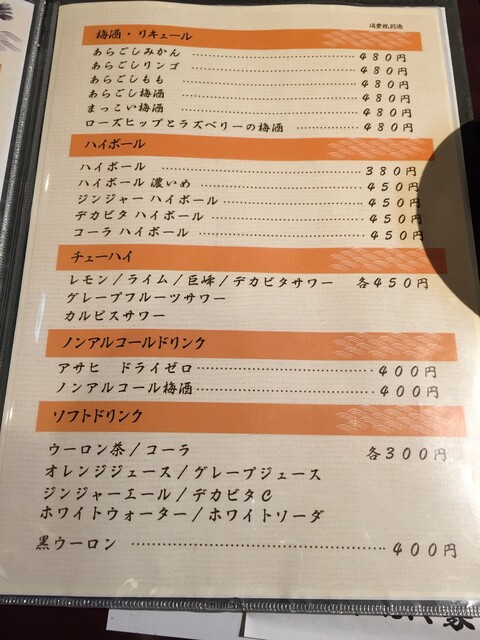 消費税別途
梅酒・リキュール
あらごしみかん 480円
あらごしリンゴ 480円
あらごしもも 480円
あらごし梅酒 480円
まっこい梅酒 480円
ローズヒップとラズベリーの梅酒 480円
ハイボール
ハイボール 380円
ハイボール 濃いめ 450円
ジンジャー ハイボール 450円
デカビタ ハイボール 450円
コーラ ハイボール 450円
チューハイ
レモン/ライム/巨峰/デカビタサワー 各450円
グレープフルーツサワー
カルピスサワー
ノンアルコールドリンク
アサヒ ドライゼロ 400円
ノンアルコール梅酒 400円
ソフトドリンク
ウーロン茶/コーラ 各300円
オレンジジュース/グレープジュース
ジンジャーエール/デカビタC
ホワイトウォーター/ホワイトソーダ
黒ウーロン 400円